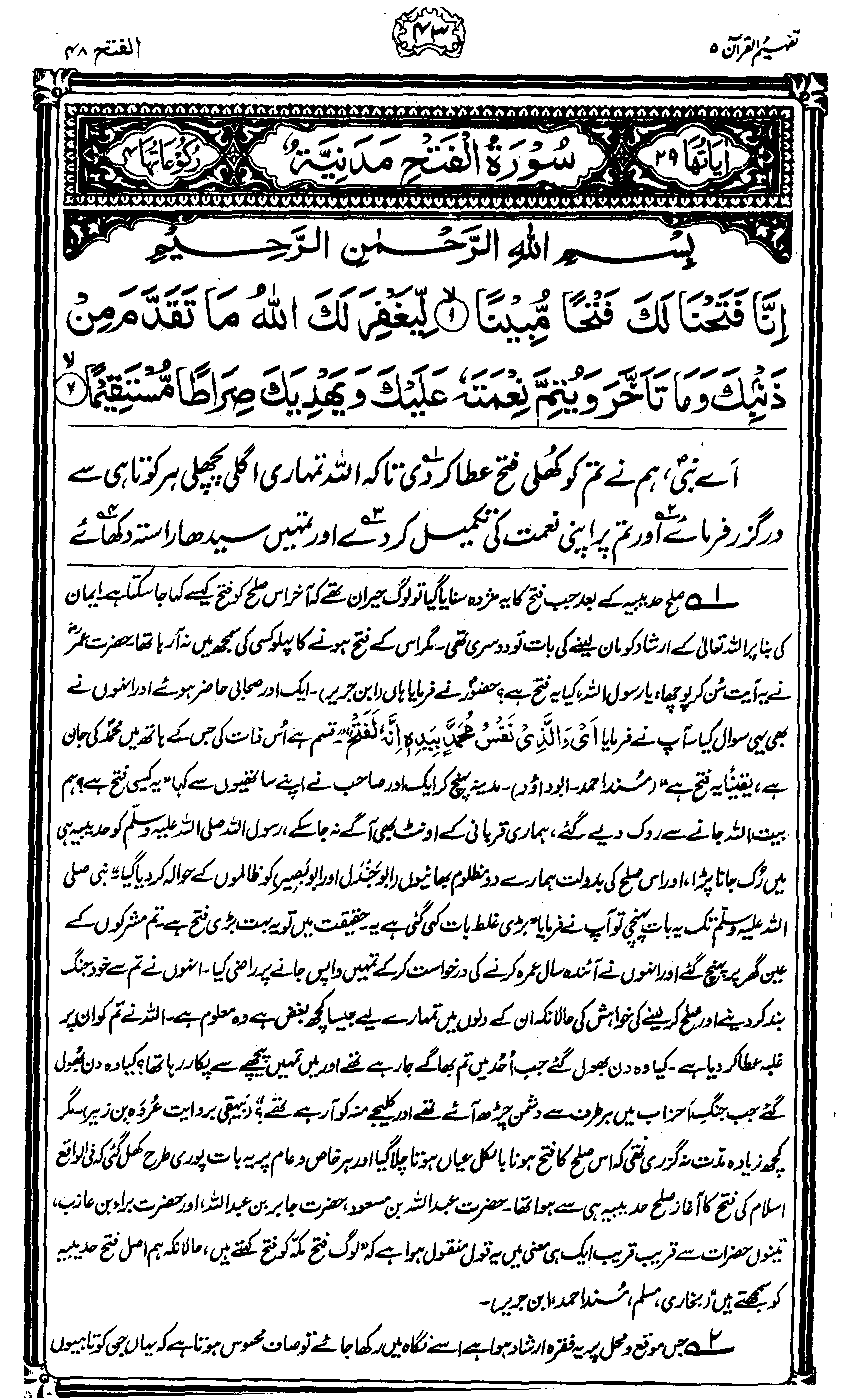 تفہیم القرآن ۵
۴۳
الفتح ۴۸
اٰیَاتُهَا ۲۹
سُوْرَةُ الْفَتْحِ مَدَنِيَّةٌ
رُكُوْعَاتُهَا ۴
بِسْمِ اللّٰهِ الرَّحْمٰنِ الرَّحِيْمِ
اِنَّا فَتَحْنَا لَكَ فَتْحًا مُّبِيْنًا ۙ۱ لِّيَغْفِرَ لَكَ اللّٰهُ مَا تَقَدَّمَ مِنْ
ذَنْۢبِكَ وَمَا تَاَخَّرَ وَيُتِمَّ نِعْمَتَهٗ عَلَيْكَ وَيَهْدِيَكَ صِرَاطًا مُّسْتَقِيْمًا ۙ۲
اَے نبیؐ، ہم نے تم کو کھُلی فتح عطا کر دی۱ تاکہ اللہ تمہاری اگلی پچھلی ہر کوتاہی سے
درگزر فرمائے۲ اور تم پر اپنی نعمت کی تکمیل کر دے۳ اور تمہیں سیدھا راستہ دکھائے۴
۱ صلح حدیبیہ کے بعد جب فتح کا یہ مژدہ سنایا گیا تو لوگ حیران تھے کہ آخر اس صلح کو فتح کیسے کہا جا سکتا ہے۔ ایمان
کی بنا پر اللہ تعالیٰ کے ارشاد کو مان لینے کی بات تو دوسری تھی۔ مگر اس کے فتح ہونے کا پہلو کسی کی سمجھ میں نہ آ رہا تھا۔ حضرت عمرؓ
نے یہ آیت سُن کر پوچھا، یا رسول اللہ، کیا یہ فتح ہے؟ حضورؐ نے فرمایا ہاں (ابن جریر)۔ ایک اور صحابی حاضر ہوئے اور انہوں نے
بھی یہی سوال کیا۔ آپ نے فرمایا اَیْ وَالَّذِیْ نَفْسُ مُحَمَّدٍ بِیَدِہٖ اِنَّہٗ لَفَتْحٌ۔ "قسم ہے اُس ذات کی جس کے ہاتھ میں محمدؐ کی جان
ہے، یقینًا یہ فتح ہے" (مُسند احمد۔ ابوداؤد)۔ مدینہ پہنچ کر ایک اور صاحب نے اپنے ساتھیوں سے کہا "یہ کیسی فتح ہے؟ ہم
بیت اللہ جانے سے روک دیے گئے، ہماری قربانی کے اونٹ بھی آگے نہ جا سکے، رسول اللہ صلی اللہ علیہ وسلّم کو حدیبیہ ہی
میں رُک جانا پڑا، اور اس صلح کی بدولت ہمارے دو مظلوم بھائیوں (ابوجَنْدل اور ابوبَصیر) کو ظالموں کے حوالہ کر دیا گیا"۔ نبی صلی
اللہ علیہ وسلّم تک یہ بات پہنچی تو آپ نے فرمایا "بڑی غلط بات کہی گئی ہے یہ۔ حقیقت میں تو یہ بہت بڑی فتح ہے۔ تم مشرکوں کے
عین گھر پر پہنچ گئے اور انہوں نے آئندہ سال عمرہ کرنے کی درخواست کر کے تمہیں واپس جانے پر راضی کیا۔ انہوں نے تم سے خود جنگ
بند کر دینے اور صلح کر لینے کی خواہش کی حالانکہ ان کے دلوں میں تمہارے لیے جیسا کچھ بغض ہے وہ معلوم ہے۔ اللہ نے تم کو ان پر
غلبہ عطا کر دیا ہے۔ کیا وہ دن بھول گئے جب اُحُد میں تم بھاگے جا رہے تھے اور میں تمہیں پیچھے سے پکار رہا تھا؟ کیا وہ دن بھُول
گئے جب جنگِ اَحزاب میں ہر طرف سے دشمن چڑھ آئے تھے اور کلیجے منہ کو آ رہے تھے؟" (بَیہقی بروایت عُروہ بن زبیر)۔ مگر
کچھ زیادہ مدّت نہ گزری تھی کہ اس صلح کا فتح ہونا بالکل عیاں ہوتا چلا گیا اور ہر خاص و عام پر یہ بات پوری طرح کھل گئی کہ فی الواقع
اسلام کی فتح کا آغاز صلح حدیبیہ ہی سے ہوا تھا۔ حضرت عبداللہ بن مسعود، حضرت جابر بن عبداللہ، اور حضرت براء بن عازب،
تینوں حضرات سے قریب قریب ایک ہی معنی میں یہ قول منقول ہوا ہے کہ "لوگ فتح مکہ کو فتح کہتے ہیں، حالانکہ ہم اصل فتح حدیبیہ
کو سمجھتے ہیں" (بخاری، مسلم، مُسند احمد، ابن جریر)۔
۲ جس موقع و محل پر یہ فقرہ ارشاد ہوا ہے اسے نگاہ میں رکھا جائے تو صاف محسوس ہوتا ہے کہ یہاں جن کوتاہیوں